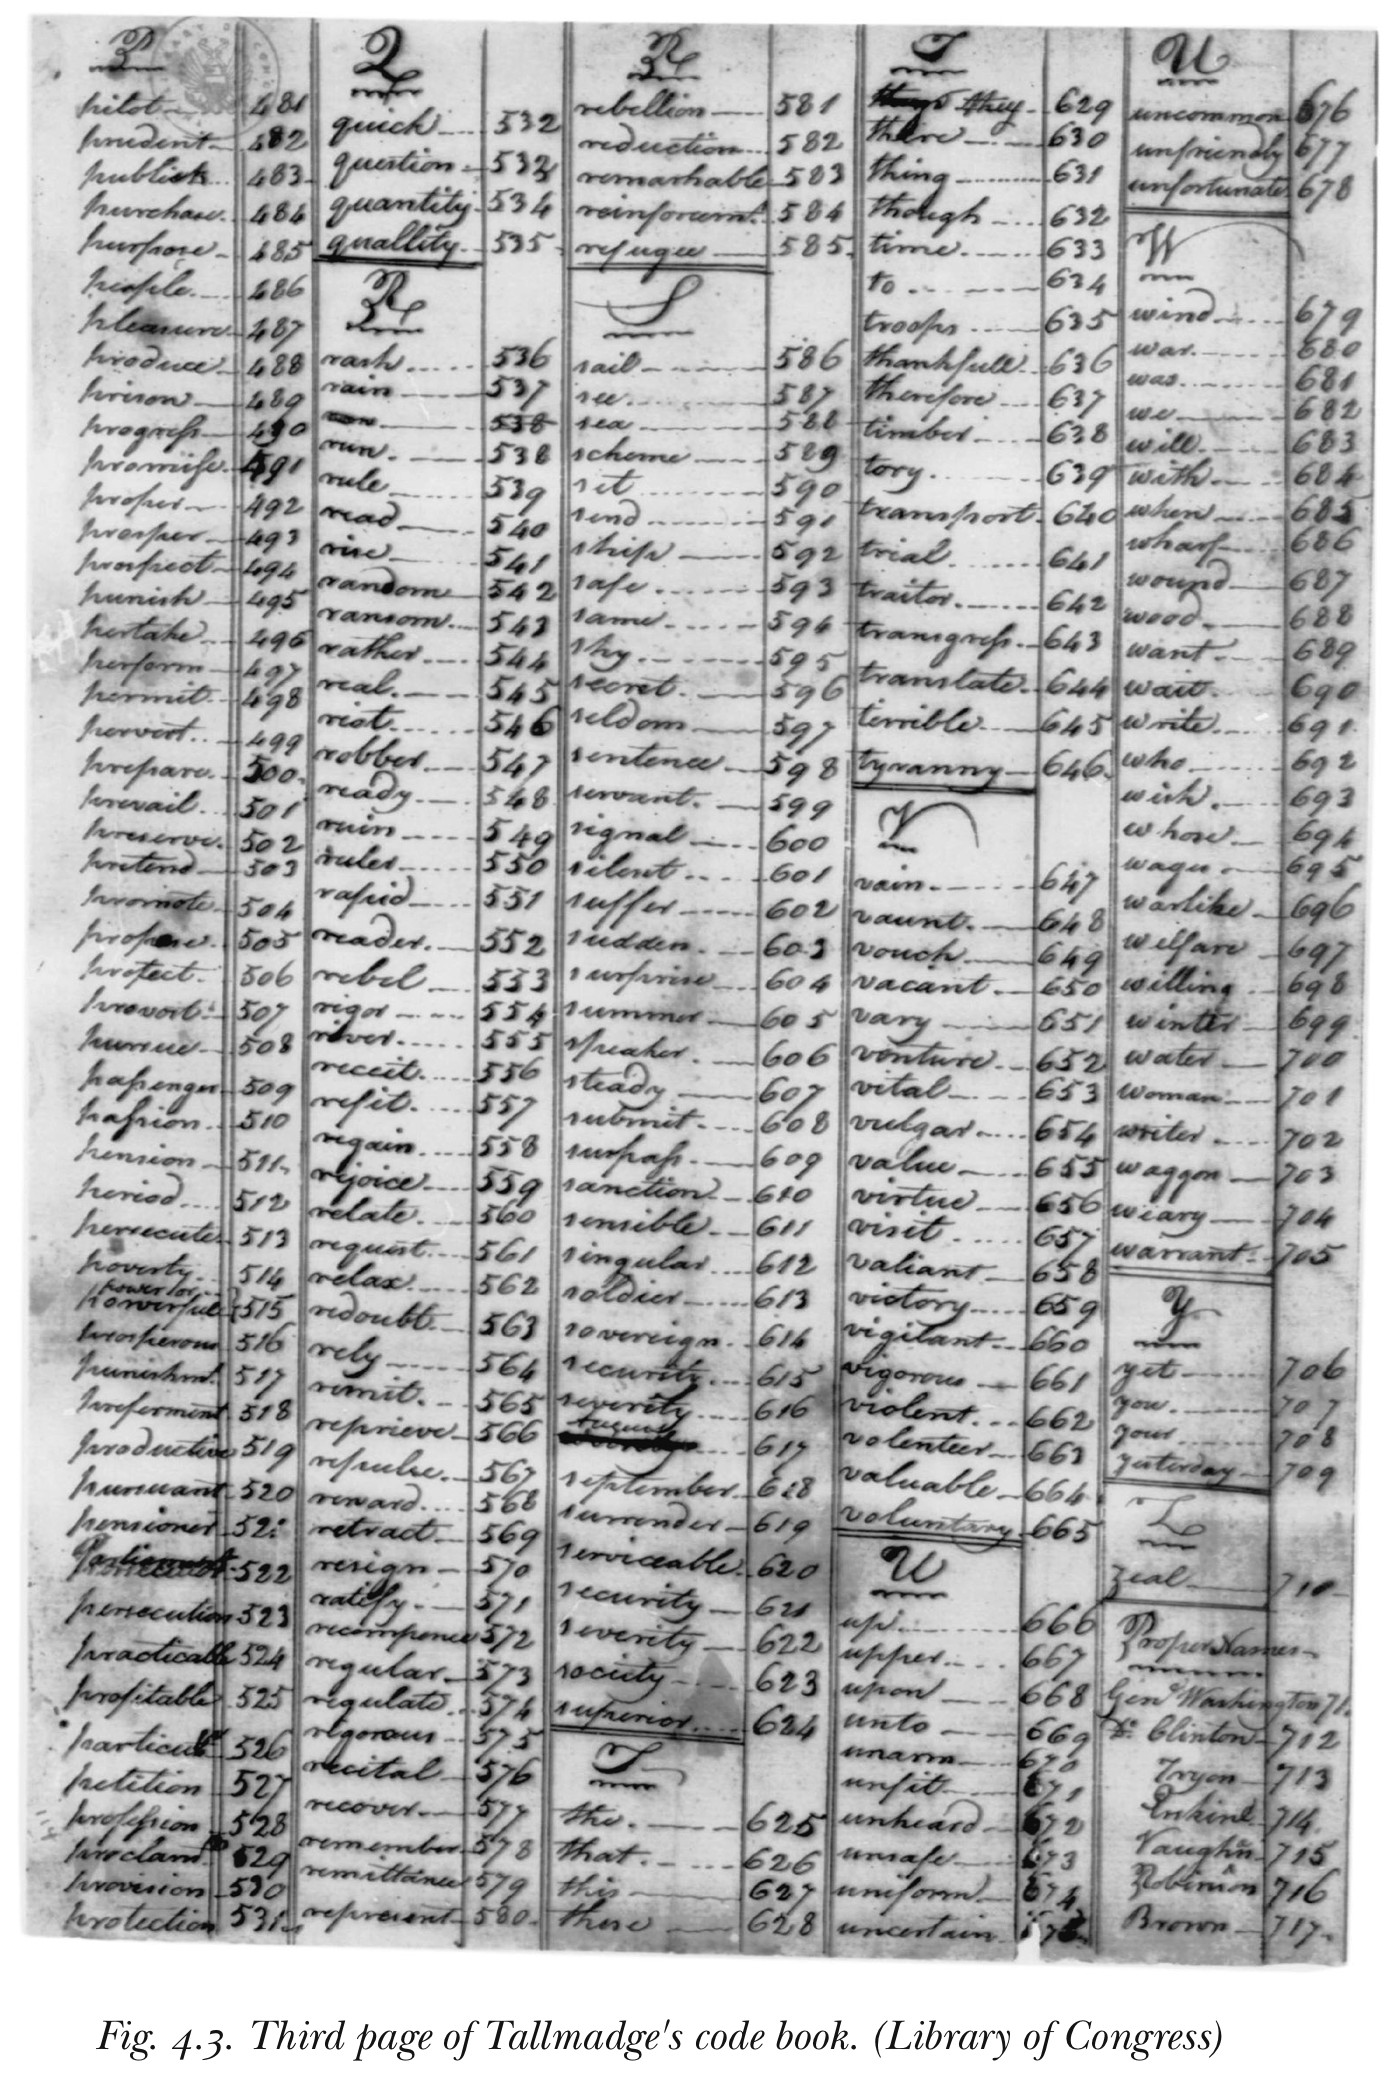 P
pilot 481
prudent 482
publish 483
purchase 484
purpose 485
people 486
pleasure 487
produce 488
prison 489
progress 490
promise 491
proper 492
prosper 493
prospect 494
punish 495
pertake 496
perform 497
permit 498
pervert 499
prepare 500
prevail 501
preserve 502
pretend 503
promote 504
propose 505
protect 506
provost 507
pursue 508
passenger 509
passion 510
pension 511
period 512
persecute 513
poverty 514
power or
powerful 515
prosperous 516
punishmt. 517
preferment 518
productive 519
pursuant 520
pensioner 521
522
persecution 523
practicable 524
profitable 525
particular 526
petition 527
profession 528
proclaim 529
provision 530
protection 531
Q
quick 532
question 533
quantity 534
quallity 535
R
rash 536
rain 537
538
run 538
rule 539
read 540
rise 541
random 542
ransom 543
rather 544
real 545
riot 546
robber 547
ready 548
ruin 549
ruler 550
rapid 551
reader 552
rebel 553
rigor 554
river 555
receit 556
refit 557
regain 558
rejoice 559
relate 560
request 561
relax 562
redoubt 563
rely 564
remit 565
reprieve 566
repulse 567
reward 568
retract 569
resign 570
ratify 571
recompence 572
regular 573
regulate 574
rigorous 575
recital 576
recover 577
remember 578
remittance 579
represent 580
R
rebellion 581
reduction 582
remarkable 583
reinforcemt. 584
refugee 585
S
sail 586
see 587
sea 588
scheme 589
set 590
send 591
ship 592
safe 593
same 594
sky 595
secret 596
seldom 597
sentence 598
servant 599
signal 600
silent 601
suffer 602
sudden 603
surprise 604
summer 605
speaker 606
steady 607
submit 608
surpass 609
sanction 610
sensible 611
singular 612
soldier 613
sovereign 614
security 615
seventy 616
617
september 618
surrender 619
serviceable 620
security 621
severity 622
society 623
superior 624
T
the 625
that 626
this 627
these 628
T
they 629
there 630
thing 631
though 632
time 633
to 634
troops 635
thankfull 636
therefore 637
timber 638
tory 639
transport 640
trial 641
traitor 642
transgress 643
translate 644
terrible 645
tyranny 646
V
vain 647
vaunt 648
vouch 649
vacant 650
vary 651
venture 652
vital 653
vulgar 654
value 655
virtue 656
visit 657
valiant 658
victory 659
vigilant 660
vigorous 661
violent 662
volenteer 663
valuable 664
voluntary 665
U
up 666
upper 667
upon 668
unto 669
unarm 670
unfit 671
unheard 672
unsafe 673
uniform 674
uncertain
U
uncommon 676
unfriendly 677
unfortunate 678
W
wind 679
war 680
was 681
we 682
will 683
with 684
when 685
wharf 686
wound 687
wood 688
want 689
wait 690
write 691
who 692
wish 693
whose 694
wages 695
warlike 696
welfare 697
willing 698
winter 699
water 700
woman 701
writer 702
waggon 703
weary 704
warrant 705
Y
yet 706
you 707
your 708
yesterday 709
Z
zeal 710
Proper Names
Genl. Washington 711
Do. Clinton 712
Tryon 713
Erskine 714
Vaughn 715
Robinson 716
Brown 717
Fig. 4.3. Third page of Tallmadge's code book. (Library of Congress)